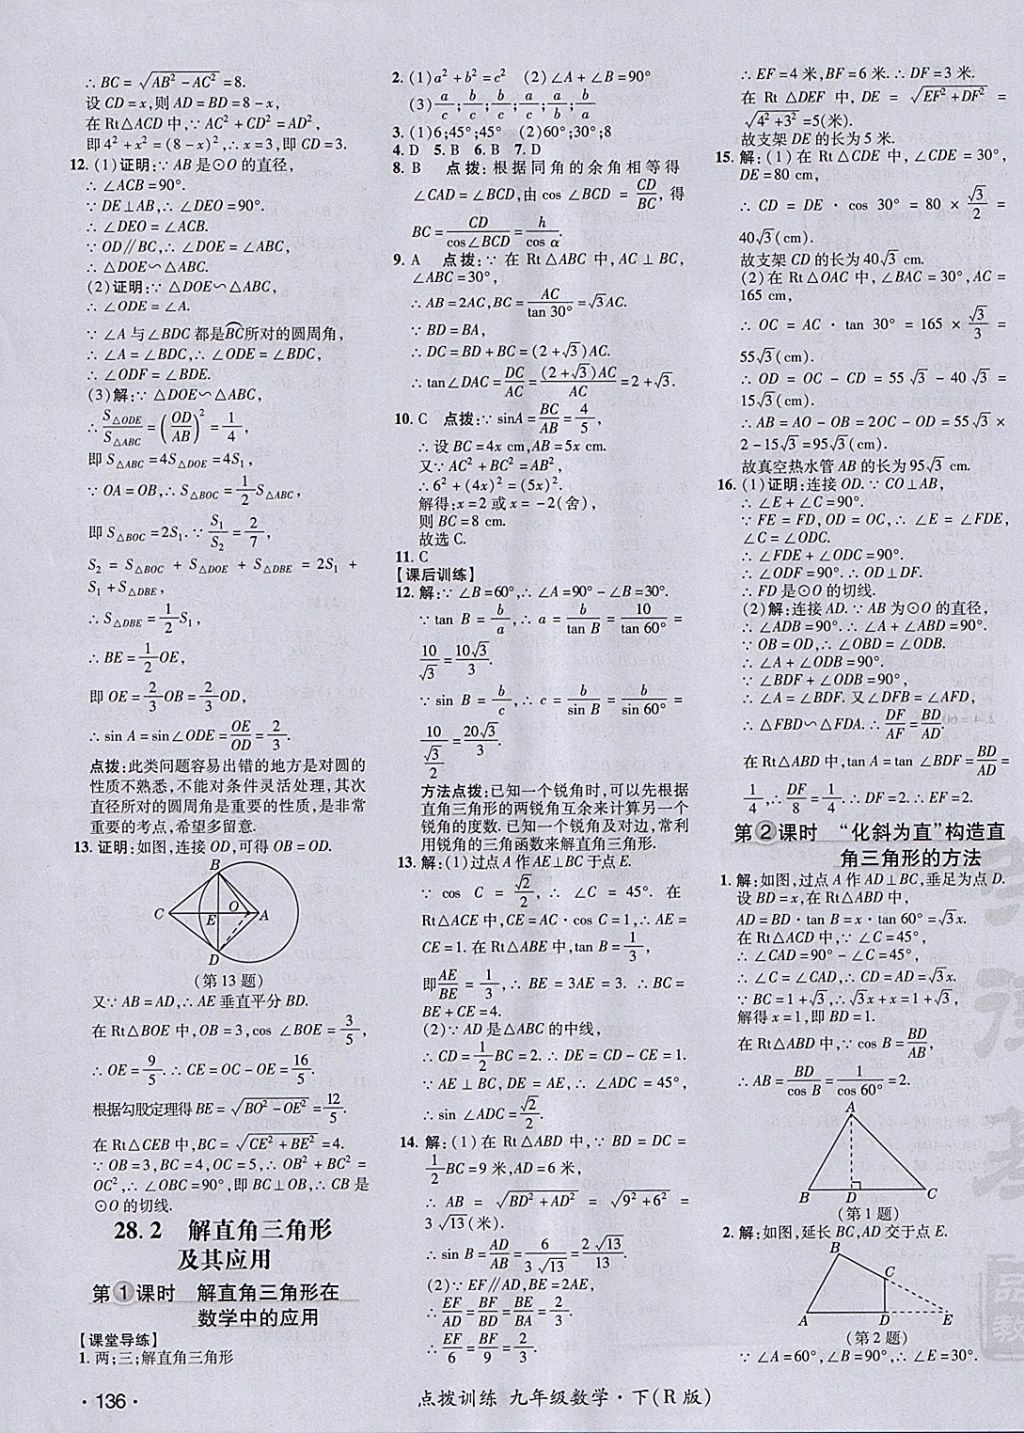 ∴BC=√(AB²-AC²)=8.
设CD=x,则AD=BD=8-x,
在Rt△ACD中,∵AC²+CD²=AD²,
即4²+x²=(8-x)²,∴x=3,即CD=3.
12. (1)证明:∵AB是⊙O的直径,
∴∠ACB=90°.
∵DE⊥AB,∴∠DEO=90°.
∴∠DEO=∠ACB.
∵OD∥BC,∴∠DOE=∠ABC,
∴△DOE∽△ABC.
(2)证明:∵△DOE∽△ABC,
∴∠ODE=∠A.
∵∠A与∠BDC都是BC所对的圆周角,
∴∠A=∠BDC,∴∠ODE=∠BDC,
∴∠ODF=∠BDE.
(3)解:∵△DOE∽△ABC,
∴S△ODE/S△ABC=(OD/AB)²=1/4,
即S△ABC=4S△DOE=4S₁,
∵OA=OB,∴S△BOC=1/2S△ABC,
即S△BOC=2S₁.∵S₁/S₂=2/7,
S₂=S△BOC+S△DOE+S△DBE=2S₁+
S₁+S△DBE,
∴S△DBE=1/2S₁,
∴BE=1/2OE,
即OE=2/3OB=2/3OD,
∴sin A=sin∠ODE=OE/OD=2/3.
点拨:此类问题容易出错的地方是对圆的
性质不熟悉,不能对条件灵活处理,其次
直径所对的圆周角是重要的性质,是非常
重要的考点,希望多留意.
13. 证明:如图,连接OD,可得OB=OD.
B
C E O A
D
(第13题)
又∵AB=AD,∴AE垂直平分BD.
在Rt△BOE中,OB=3,cos∠BOE=3/5,
∴OE=9/5.∴CE=OC-OE=16/5.
根据勾股定理得BE=√(BO²-OE²)=12/5.
在Rt△CEB中,BC=√(CE²+BE²)=4.
∵OB=3,BC=4,OC=5,∴OB²+BC²=
OC²,∴∠OBC=90°,即BC⊥OB,∴CB是
⊙O的切线.
28.2 解直角三角形
及其应用
第1课时 解直角三角形在
数学中的应用
【课堂导练】
1. 两;三;解直角三角形
2. (1)a²+b²=c² (2)∠A+∠B=90°
(3)a/c;b/c;a/b;b/c;a/c;b/a
3. (1)6;45°;45° (2)60°;30°;8
4. D 5. B 6. B 7. D
8. B 点拨:根据同角的余角相等得
∠CAD=∠BCD,由cos∠BCD=CD/BC,得
BC=CD/cos∠BCD=h/cos α.
9. A 点拨:∵在Rt△ABC中,AC⊥BC,
∠ABC=30°,
∴AB=2AC,BC=AC/tan 30°=√3AC.
∵BD=BA,
∴DC=BD+BC=(2+√3)AC.
∴tan∠DAC=DC/AC=(2+√3)AC/AC=2+√3.
10. C 点拨:∵sinA=BC/AB=4/5,
∴设BC=4x cm,AB=5x cm.
又∵AC²+BC²=AB²,
∴6²+(4x)²=(5x)².
解得:x=2或x=-2(舍),
则BC=8 cm.
故选C.
11. C
【课后训练】
12. 解:∵∠B=60°,∴∠A=90°-∠B=30°.
∵tan B=b/a,∴a=b/tan B=10/tan 60°=
10/√3=10√3/3.
∵sin B=b/c,∴c=b/sin B=b/sin 60°=
10/(√3/2)=20√3/3.
方法点拨:已知一个锐角时,可以先根据
直角三角形的两锐角互余来计算另一个
锐角的度数.已知一锐角及对边,常利
用锐角的三角函数来解直角三角形.
13. 解:(1)过点A作AE⊥BC于点E.
∵cos C=√2/2,∴∠C=45°.在
Rt△ACE中,CE=AC·cos C=1,∴AE=
CE=1.在Rt△ABE中,tan B=1/3,
即AE/BE=1/3,∴BE=3AE=3.∴BC=
BE+CE=4.
(2)∵AD是△ABC的中线,
∴CD=1/2BC=2.∴DE=CD-CE=1.
∵AE⊥BC,DE=AE,∴∠ADC=45°,
∴sin∠ADC=√2/2.
14. 解:(1)在Rt△ABD中,∵BD=DC=
1/2BC=9米,AD=6米,
∴AB=√(BD²+AD²)=√(9²+6²)=
3√13(米).
∴sin B=AD/AB=6/3√13=2√13/13.
(2)∵EF∥AD,BE=2AE,
∴EF/AD=BF/BD=BE/BA=2/3.
∴EF/6=BF/9=2/3.
∴EF=4米,BF=6米.∴DF=3米.
在Rt△DEF中,DE=√(EF²+DF²)=
√(4²+3²)=5(米).
故支架DE的长为5米.
15. 解:(1)在Rt△CDE中,∠CDE=30°,
DE=80 cm,
∴CD=DE·cos 30°=80×√3/2=
40√3(cm).
故支架CD的长为40√3 cm.
(2)在Rt△OAC中,∠BAC=30°,AC=
165 cm,
∴OC=AC·tan 30°=165×√3/3=
55√3(cm).
∴OD=OC-CD=55√3-40√3=
15√3(cm).
∴AB=AO-OB=2OC-OD=55√3×
2-15√3=95√3(cm).
故真空热水管AB的长为95√3 cm.
16. (1)证明:连接OD.∵CO⊥AB,
∴∠E+∠C=90°.
∵FE=FD,OD=OC,∴∠E=∠FDE,
∠C=∠ODC.
∴∠FDE+∠ODC=90°.
∴∠ODF=90°.∴OD⊥DF.
∴FD是⊙O的切线.
(2)解:连接AD.∵AB为⊙O的直径,
∴∠ADB=90°.∴∠A+∠ABD=90°.
∵OB=OD,∴∠OBD=∠ODB.
∴∠A+∠ODB=90°.
∵∠BDF+∠ODB=90°,
∴∠A=∠BDF.又∠DFB=∠AFD,
∴△FBD∽△FDA.∴DF/AF=BD/AD.
在Rt△ABD中,tan A=tan∠BDF=BD/AD=
1/4,∴DF/8=1/4.∴DF=2.∴EF=2.
第2课时 “化斜为直”构造直
角三角形的方法
1. 解:如图,过点A作AD⊥BC,垂足为点D.
设BD=x,在Rt△ABD中,
AD=BD·tan B=x·tan 60°=√3x.
在Rt△ACD中,∵∠C=45°,
∴∠CAD=90°-∠C=45°,
∴∠C=∠CAD,∴CD=AD=√3x.
∵BC=1+√3,∴√3x+x=1+√3,
解得x=1,即BD=1.
在Rt△ABD中,∵cos B=BD/AB,
∴AB=BD/cos B=1/cos 60°=2.
A
B D C
(第1题)
2. 解:如图,延长BC,AD交于点E.
B
C
A D E
(第2题)
∵∠A=60°,∠B=90°,∴∠E=30°.
·136·
点拨训练 九年级数学·下(R版)